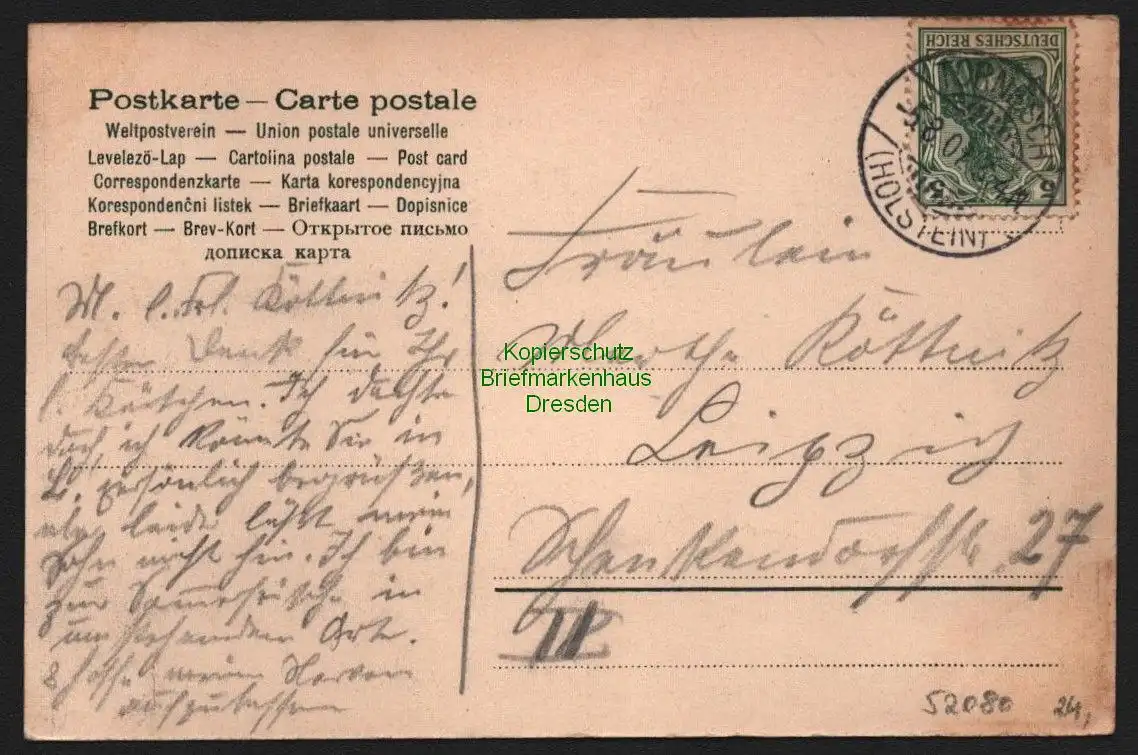 Postkarte — Carte postale
Weltpostverein — Union postale universelle
Levelező-Lap — Cartolina postale — Post card
Correspondenzkarte — Karta korespondencyjna
Korespondenční listek — Briefkaart — Dopisnice
Brefkort — Brev-Kort — Открытое письмо
дописка карта
M. l. Frl. Köllnitz!
besten Dank für Ihr
l. Kärtchen. Ich dachte
doch ich könnte Sie in
L. persönlich begrüßen,
aber leider läßt mein
Sohn nicht hin. Ich bin
zur Sommerfrische in
umstehendem Orte.
& hoffe meine Nerven
aufzubessern
DEUTSCHES REICH
5
(HOLSTEIN)
Fräulein
Marthe Köllnitz
Leipzig
Schenkendorfstr. 27
III
Kopierschutz
Briefmarkenhaus
Dresden
52080 24,